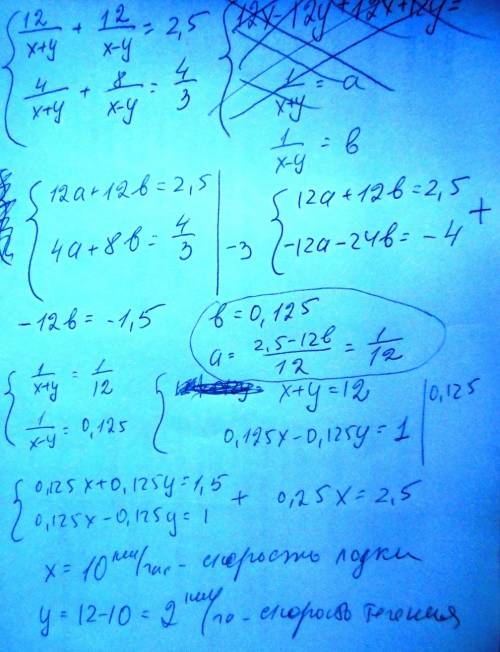 { 12/(x+y) + 12/(x-y) = 2,5
{ 4/(x+y) + 8/(x-y) = 4/3
1/(x+y) = a
1/(x-y) = b
{ 12a+12b=2,5
{ 4a+8b=4/3 | -3
{ 12a+12b=2,5
{ -12a-24b=-4 +
-12b=-1,5
b=0,125
a= (2,5-12b)/12 = 1/12
{ 1/(x+y) = 1/12
{ 1/(x-y) = 0,125
{ x+y=12 | 0,125
{ 0,125x-0,125y=1
{ 0,125x+0,125y=1,5
{ 0,125x-0,125y=1 +
0,25x=2,5
x=10 км/час - скорость лодки
y=12-10=2 км/ - скорость течения